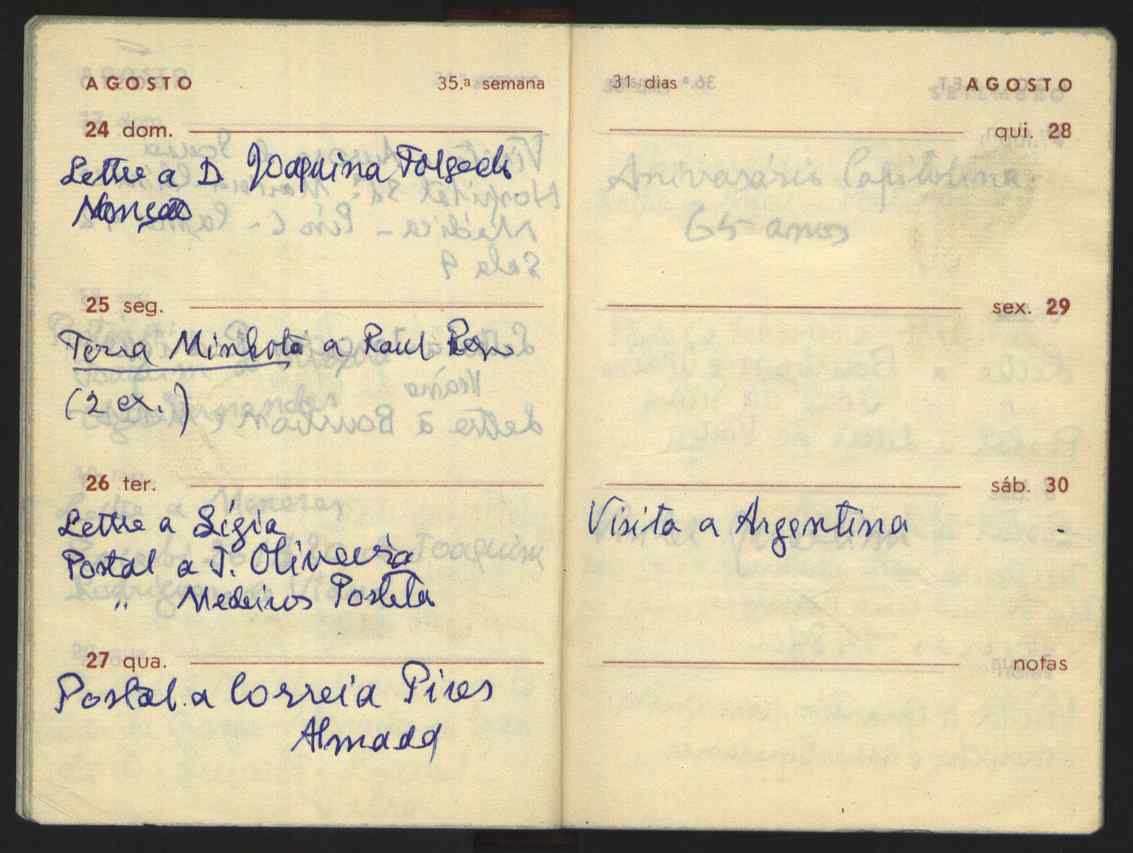 AGOSTO 35.ª semana
24 dom.
Lettre a D. Joaquina Folgado
Monção
25 seg.
Terra Minhota a Raul Rego
(2 ex.)
26 ter.
Lettre a Ligia
Postal a J. Oliveira
" Medeiros
27 qua.
Postal a Correia Pires
Almada
31 dias AGOSTO
qui. 28
Aniversário Capitolina
65 anos
sex. 29
sáb. 30
Visita a Argentina
notas